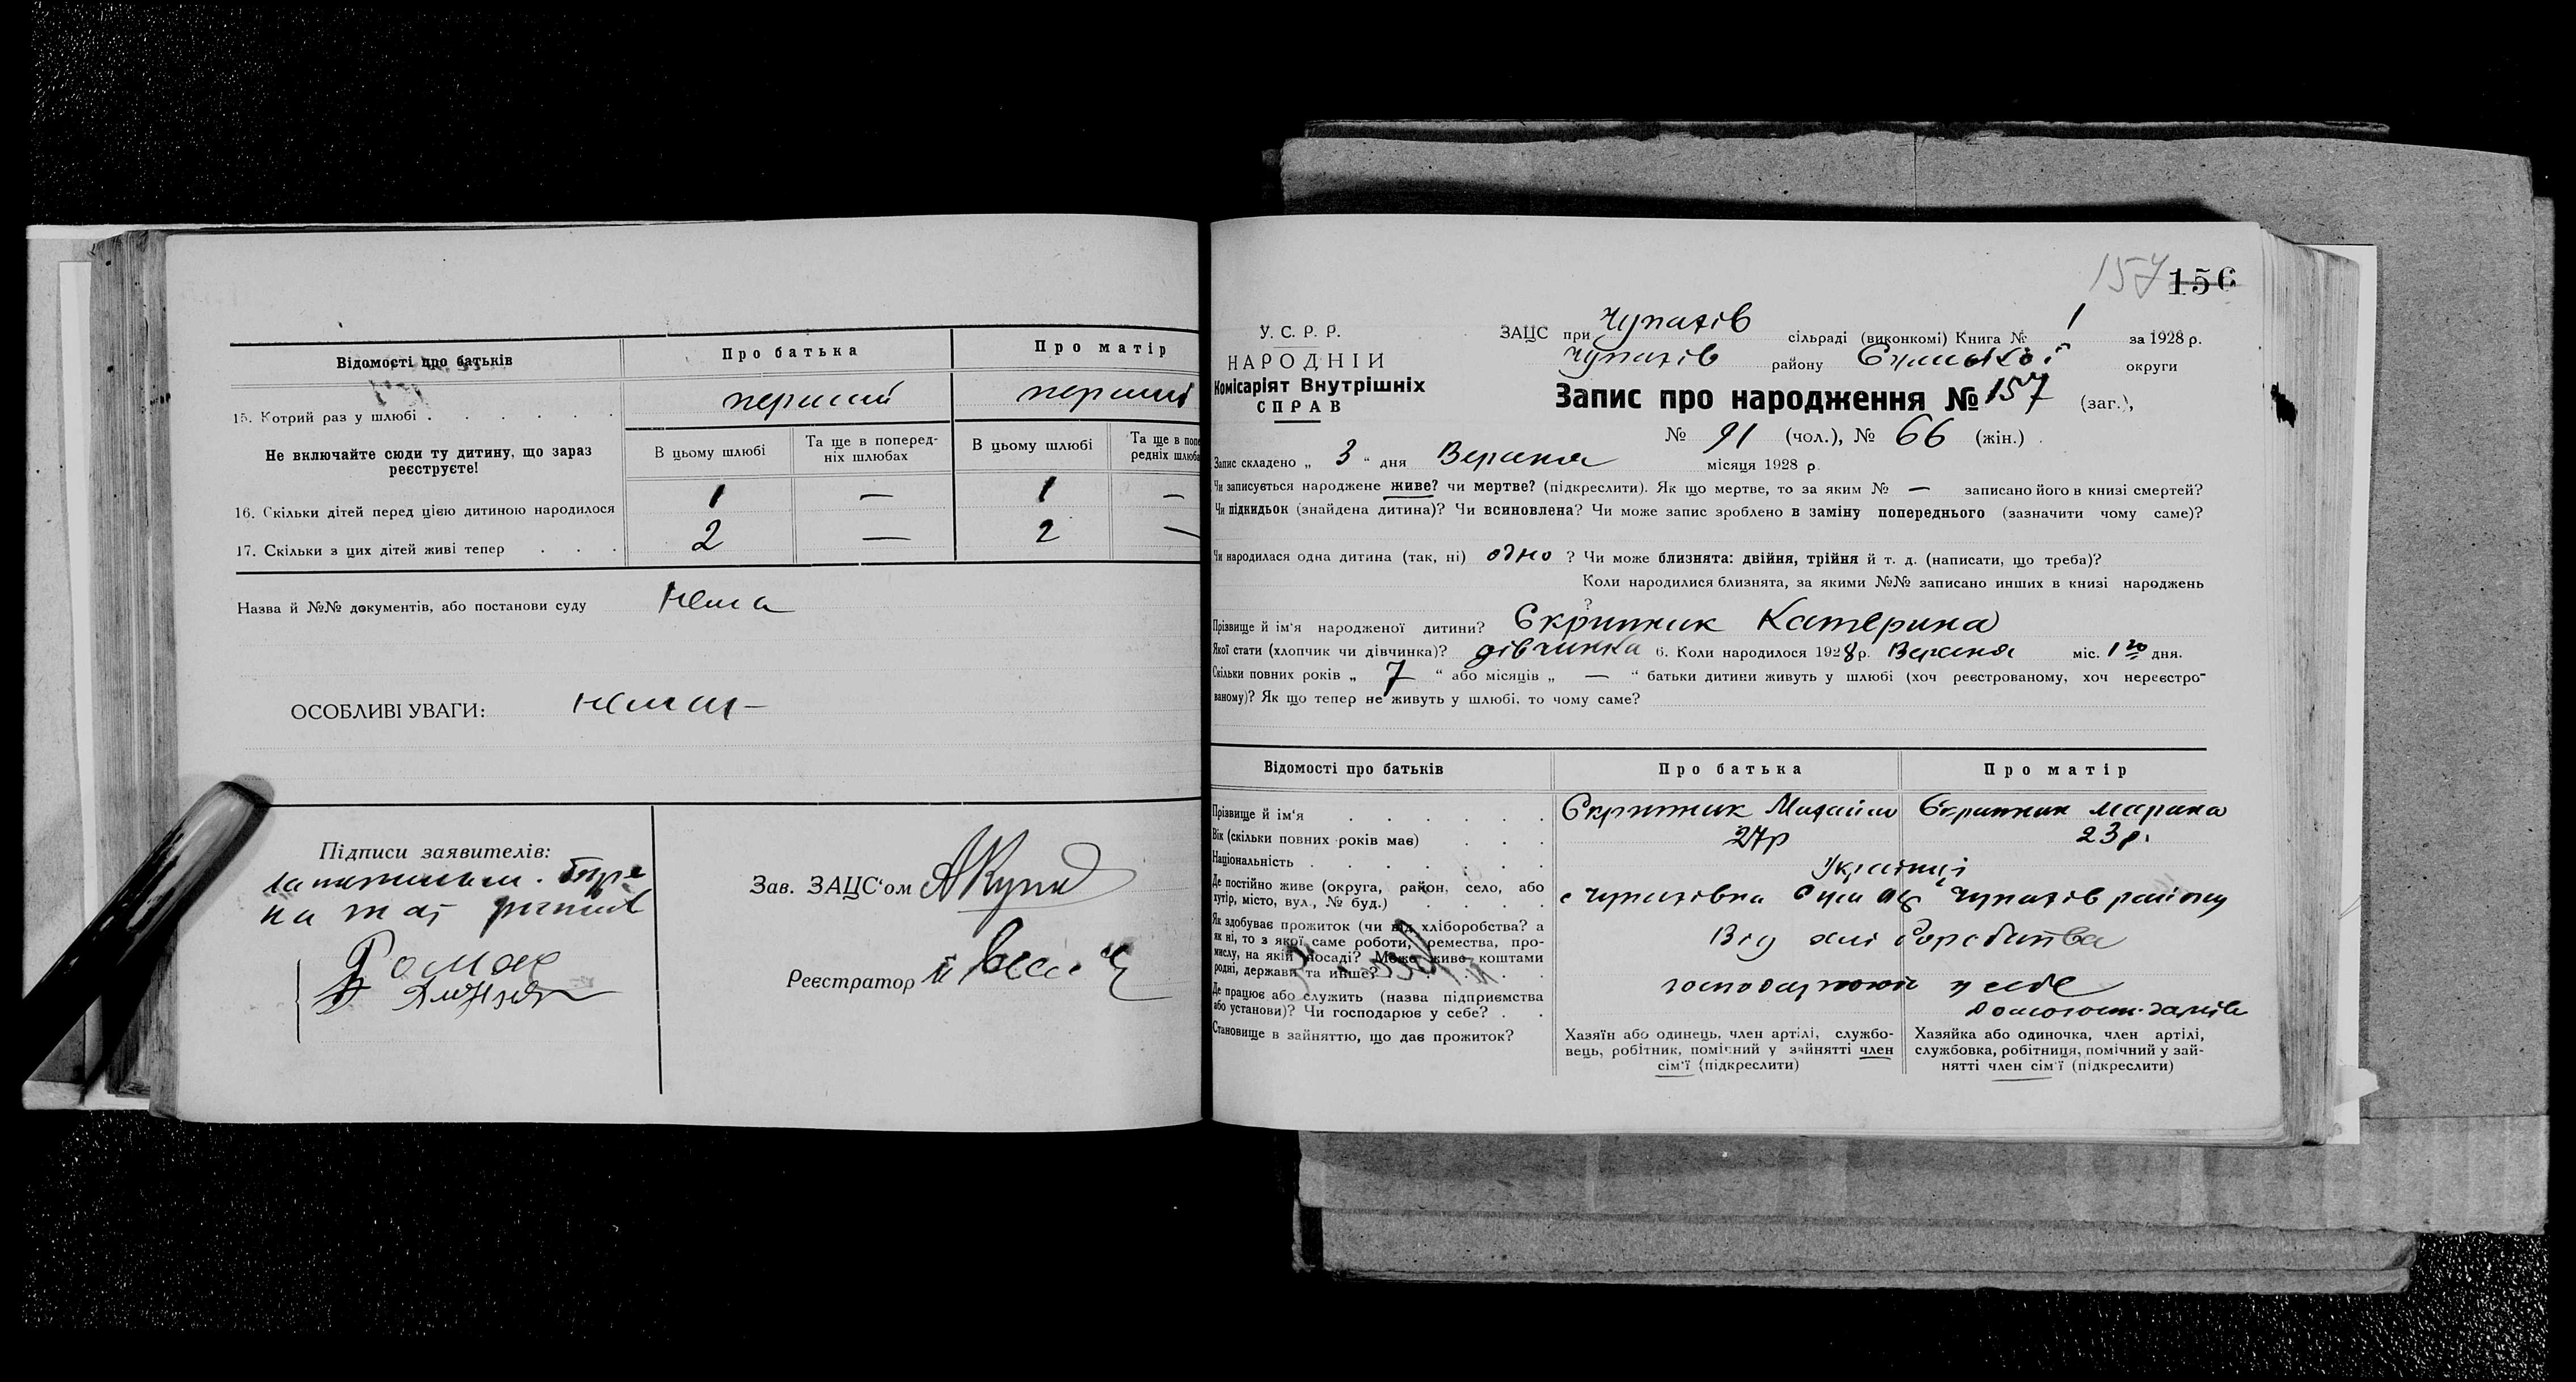 Відомості про батьків
Про батька
Про матір
15. Котрий раз у шлюбі
перший
перший
Не включайте сюди ту дитину, що зараз реєструєте!
В цьому шлюбі
Та ще в поперед-
ніх шлюбах
В цьому шлюбі
Та ще в попе
редніх шлюба
16. Скільки дітей перед цією дитиною народилося
1 — 1 —
17. Скільки з цих дітей живі тепер
2 — 2 —
Назва й №№ документів, або постанови суду
нема
ОСОБЛИВІ УВАГИ:
нема
Підписи заявителів:
Роман
Зав. ЗАЦС'ом
Реєстратор
157 156
У. С. Р. Р.
НАРОДНІЙ
Комісаріят Внутрішніх
СПРАВ
ЗАЦС при Чупахів сільраді (виконкомі) Книга № 1 за 1928 р.
Чупахів району Сумської округи
Запис про народження № 157 (заг.),
№ 91 (чол.), № 66 (жін.)
Запис складено „ 3 “ дня Вересня місяця 1928 р.
Чи записується народжене живе? чи мертве? (підкреслити). Як що мертве, то за яким № — записано його в книзі смертей?
Чи підкидьок (знайдена дитина)? Чи всиновлена? Чи може запис зроблено в заміну попереднього (зазначити чому саме)?
Чи народилася одна дитина (так, ні) одно ? Чи може близнята: двійня, трійня й т. д. (написати, що треба)?
Коли народилися близнята, за якими №№ записано инших в книзі народжень
?
Прізвище й ім'я народженої дитини? Скрипник Катерина
Якої стати (хлопчик чи дівчинка)? дівчинка 6. Коли народилося 1928 р. Вересня міс. 1го дня.
Скільки повних років „ 7 “ або місяців „ — “ батьки дитини живуть у шлюбі (хоч реєстрованому, хоч нереєстро-
ваному)? Як що тепер не живуть у шлюбі, то чому саме?
Відомості про батьків
Про батька
Про матір
Прізвище й ім'я
Скрипник Михайло
Скрипник Марина
Вік (скільки повних років має)
27р
23 р.
Національність
Українці
Де постійно живе (округа, район, село, або
хутір, місто, вул., № буд.)
с Чупахівка Сум окр Чупахів району
Як здобуває прожиток (чи від хліборобства? а
як ні, то з якої саме роботи, ремества, про-
мислу, на якій посаді? Може живе коштами
родні, держави та инше?
Від хліборобства
Де працює або служить (назва підприємства
або установи)? Чи господарює у себе?
господарюють у себе
Становище в зайняттю, що дає прожиток?
Хазяїн або одинець, член артілі, службо-
вець, робітник, помічний у зайнятті член
сім'ї (підкреслити)
Хазяйка або одиночка, член артілі,
службовка, робітниця, помічний у зай-
нятті член сім'ї (підкреслити)